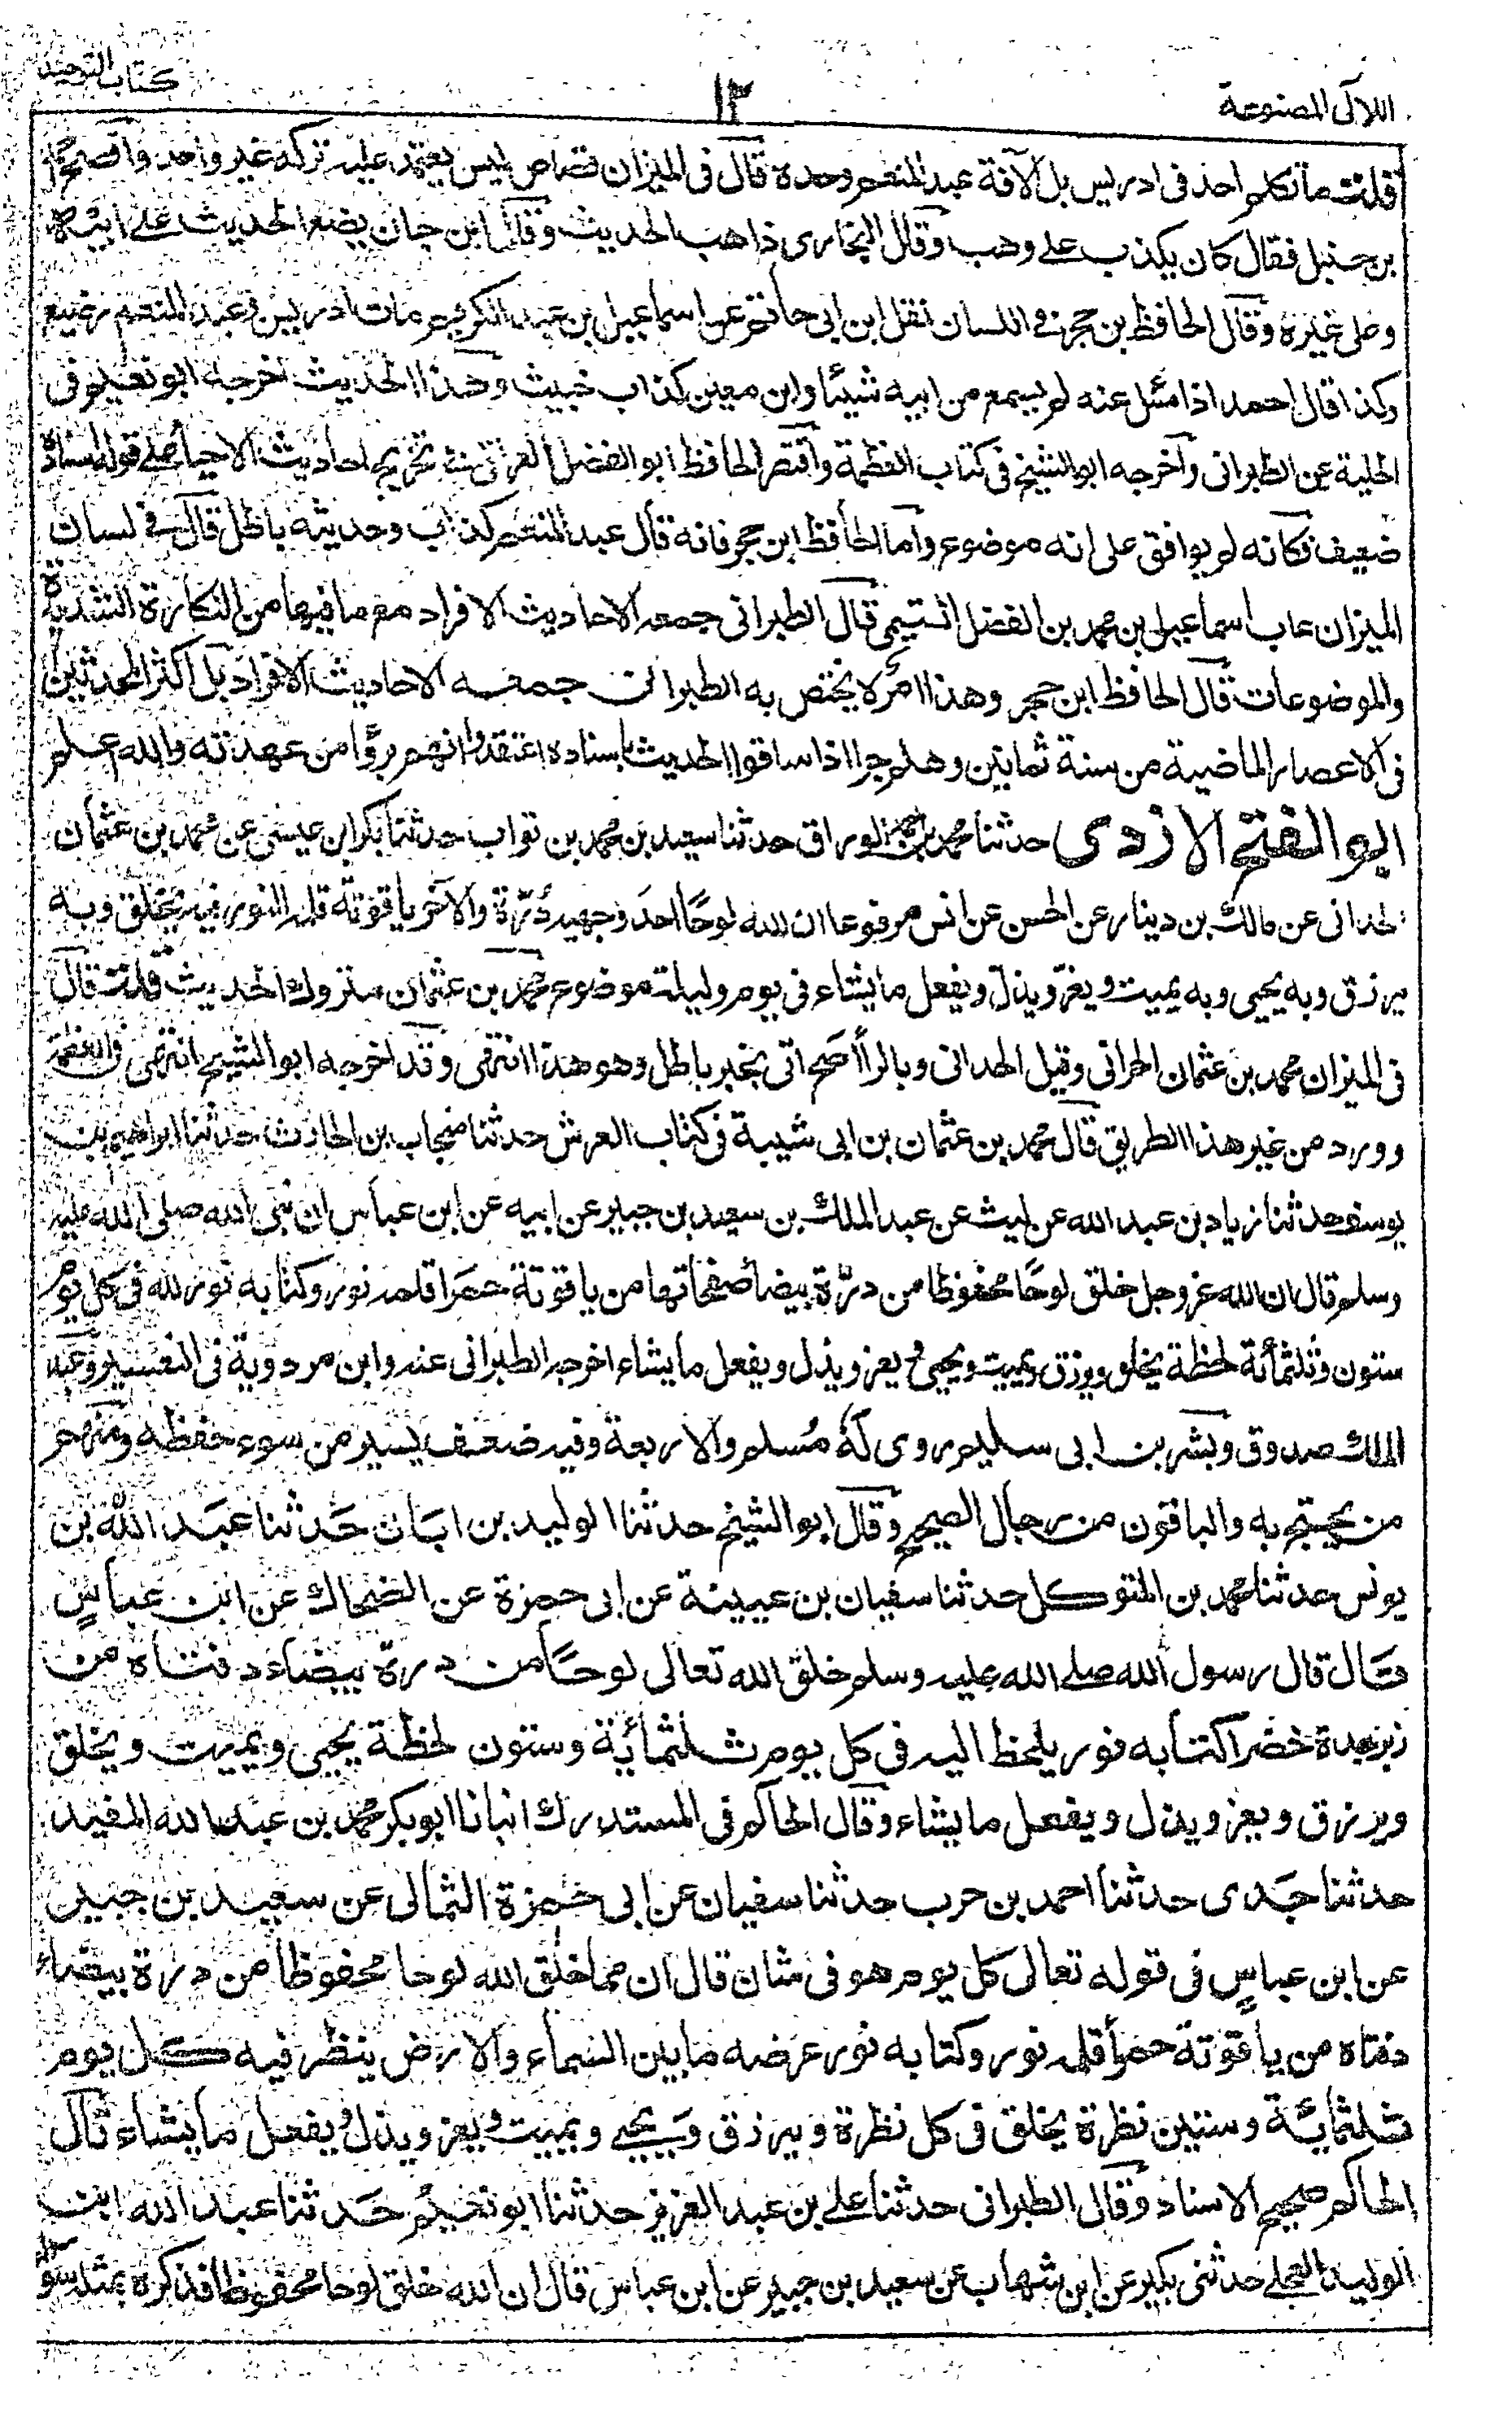 اللآلى المصنوعة
١٣
كتاب التوحيد
قلت ما تكلم احد فى ادريس بل الآفة عبد المنعم وحده قال فى الميزان قصاص ليس يعتمد عليه تركه غير واحد وافصح
بن حنبل فقال كان يكذب على وهب وقال البخارى ذاهب الحديث وقال ابن حبان يضع الحديث على ابيه
وعلى غيره وقال الحافظ بن حجر فى اللسان نقل ابن ابى حاتم عن اسماعيل بن عبد الكريم مات ادريس وعبد المنعم رضيع
وكذا قال احمد اذا سئل عنه لم يسمع من ابيه شيئا وابن معين كذاب خبيث وهذا الحديث اخرجه ابو نعيم فى
الحلية عن الطبرانى وآخرجه ابو الشيخ فى كتاب العظمة واقتصر الحافظ ابو الفضل العراقى فى تخريج احاديث الاحياء على قوله اسناده
ضعيف فكانه لم يوافق على انه موضوع واما الحافظ ابن حجر فانه قال عبد المنعم كذاب وحديثه باطل قال فى لسان
الميزان عاب اسماعيل بن محمد بن الفضل التيمى قال الطبرانى جمعه الاحاديث الافراد مع ما فيها من النكارة الشديدة
والموضوعات قال الحافظ ابن حجر وهذا امر لا يختص به الطبرانى جمعه الاحاديث الافراد بل اكثر المحدثين
فى الاعصار الماضية من سنة ثمانين وهلم جرا اذا ساقوا الحديث باسناده اعتقدوا انهم برؤا من عهدته والله اعلم
ابو الفتح الازدى حدثنا محمد بن الوراق حدثنا سعيد بن محمد بن ثواب حدثنا بكر ابن عيسى عن محمد بن عثمان
الحدانى عن مالك بن دينار عن الحسن عن انس مرفوعا ان لله لوحا احد وجهيه درة والآخر ياقوتة قلمه النور فبه يخلق وبه
يرزق وبه يحيى وبه يميت ويعز ويذل ويفعل ما يشاء فى يوم وليلة موضوع محمد بن عثمان متروك الحديث قلت قال
فى الميزان محمد بن عثمان الحرانى وقيل الحدانى وبالراأصح اتى بخبر باطل وهو هذا انتهى وقد اخرجه ابو الشيخ انتهى فى العظمة
وورد من غير هذا الطريق قال محمد بن عثمان بن ابى شيبة فى كتاب العرش حدثنا منجاب بن الحارث حدثنا ابراهيم بن
يوسف حدثنا زياد بن عبد الله عن ليث عن عبد الملك بن سعيد بن جبير عن ابيه عن ابن عباس ان نبى الله صلى الله عليه
وسلم قال ان الله عز وجل خلق لوحا محفوظا من درة بيضا صفحاتها من ياقوتة حمرا قلمه نور وكتابه نور لله فى كل يوم
ستون وثلثمائة لحظة يخلق ويرزق ويميت ويحيى ويعز ويذل ويفعل ما يشاء اخرجه الطبرانى عنه وابن مردوية فى التفسير وعبد
الملك صدوق وبشر بن ابى سليم روى له مسلم والاربعة وفيه ضعف يسير من سوء حفظه ومنهم
من يحتج به والباقون من رجال الصحيح وقال ابو الشيخ حدثنا الوليد بن ابان حدثنا عبد الله بن
يونس حدثنا محمد بن المتوكل حدثنا سفيان بن عيينة عن ابى حمزة عن الضحاك عن ابن عباس
قال قال رسول الله صلى الله عليه وسلم خلق الله تعالى لوحا من درة بيضاء دفتاه من
زبرجدة خضرا كتابه نور يلحظ اليه فى كل يوم ثلثمائة وستون لحظة يحيى ويميت ويخلق
ويرزق ويعز ويذل ويفعل ما يشاء وقال الحاكم فى المستدرك انبانا ابوبكر محمد بن عبد الله المفيد
حدثنا جدى حدثنا احمد بن حرب حدثنا سفيان عن ابى حمزة الثمالى عن سعيد بن جبير
عن ابن عباس فى قوله تعالى كل يوم هو فى شان قال ان مما خلق الله لوحا محفوظا من درة بيضاء
دفتاه من ياقوتة حمرا قلمه نور وكتابه نور عرضه ما بين السماء والارض ينظر فيه كل يوم
ثلثمائة وستين نظرة يخلق فى كل نظرة ويرزق ويحيى ويميت ويعز ويذل ويفعل ما يشاء قال
الحاكم صحيح الاسناد وقال الطبرانى حدثنا على بن عبد العزيز حدثنا ابو نعيم حدثنا عبد الله ابن
الوليد العجلى حدثنى بكير عن ابن شهاب عن سعيد بن جبير عن ابن عباس قال ان الله خلق لوحا محفوظا فذكره بمثله سواء